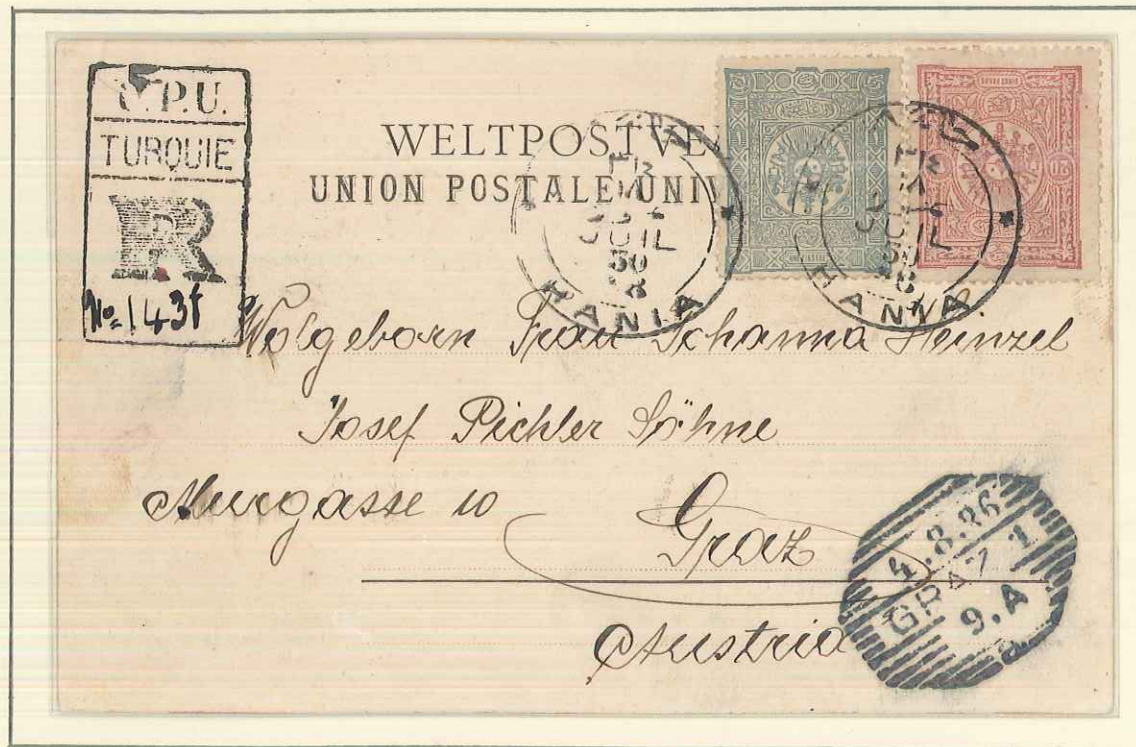 U.P.U.
TURQUIE
R
No. 143
WELTPOSTVE
UNION POSTALE UNIV
HANIA
HANIA
JUIL
JUIL
20
Wolgeborn Frau Johanna Heinzel
Josef Pichler Söhne
Murgasse 10
Graz
Austria
4.8.96
GRAZ 1
9.A
a